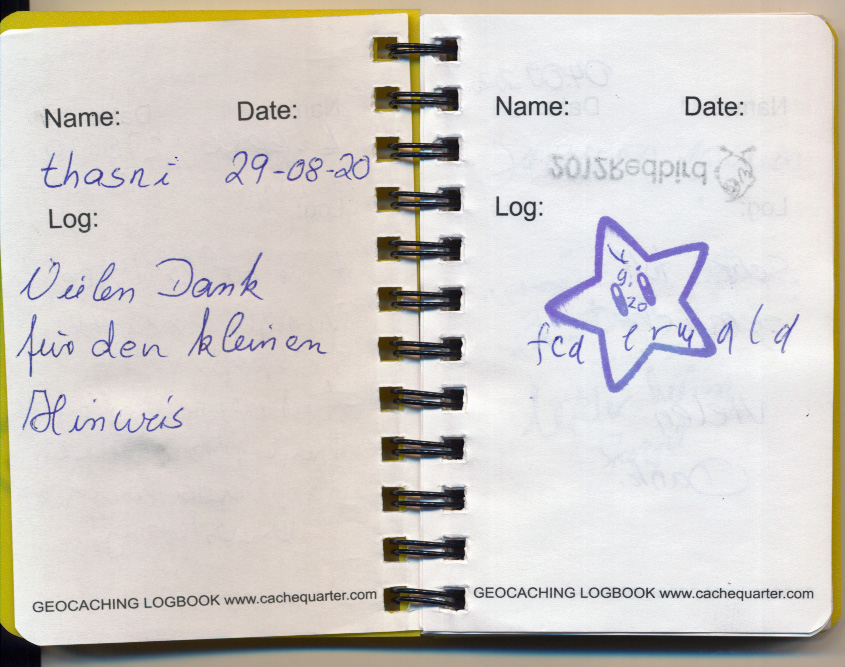 Name: Date:
thasni 29-08-20
Log:
Vielen Dank
für den kleinen
Hinweis
GEOCACHING LOGBOOK www.cachequarter.com
Name: Date:
2012Redbird
Log:
20
GEOCACHING LOGBOOK www.cachequarter.com